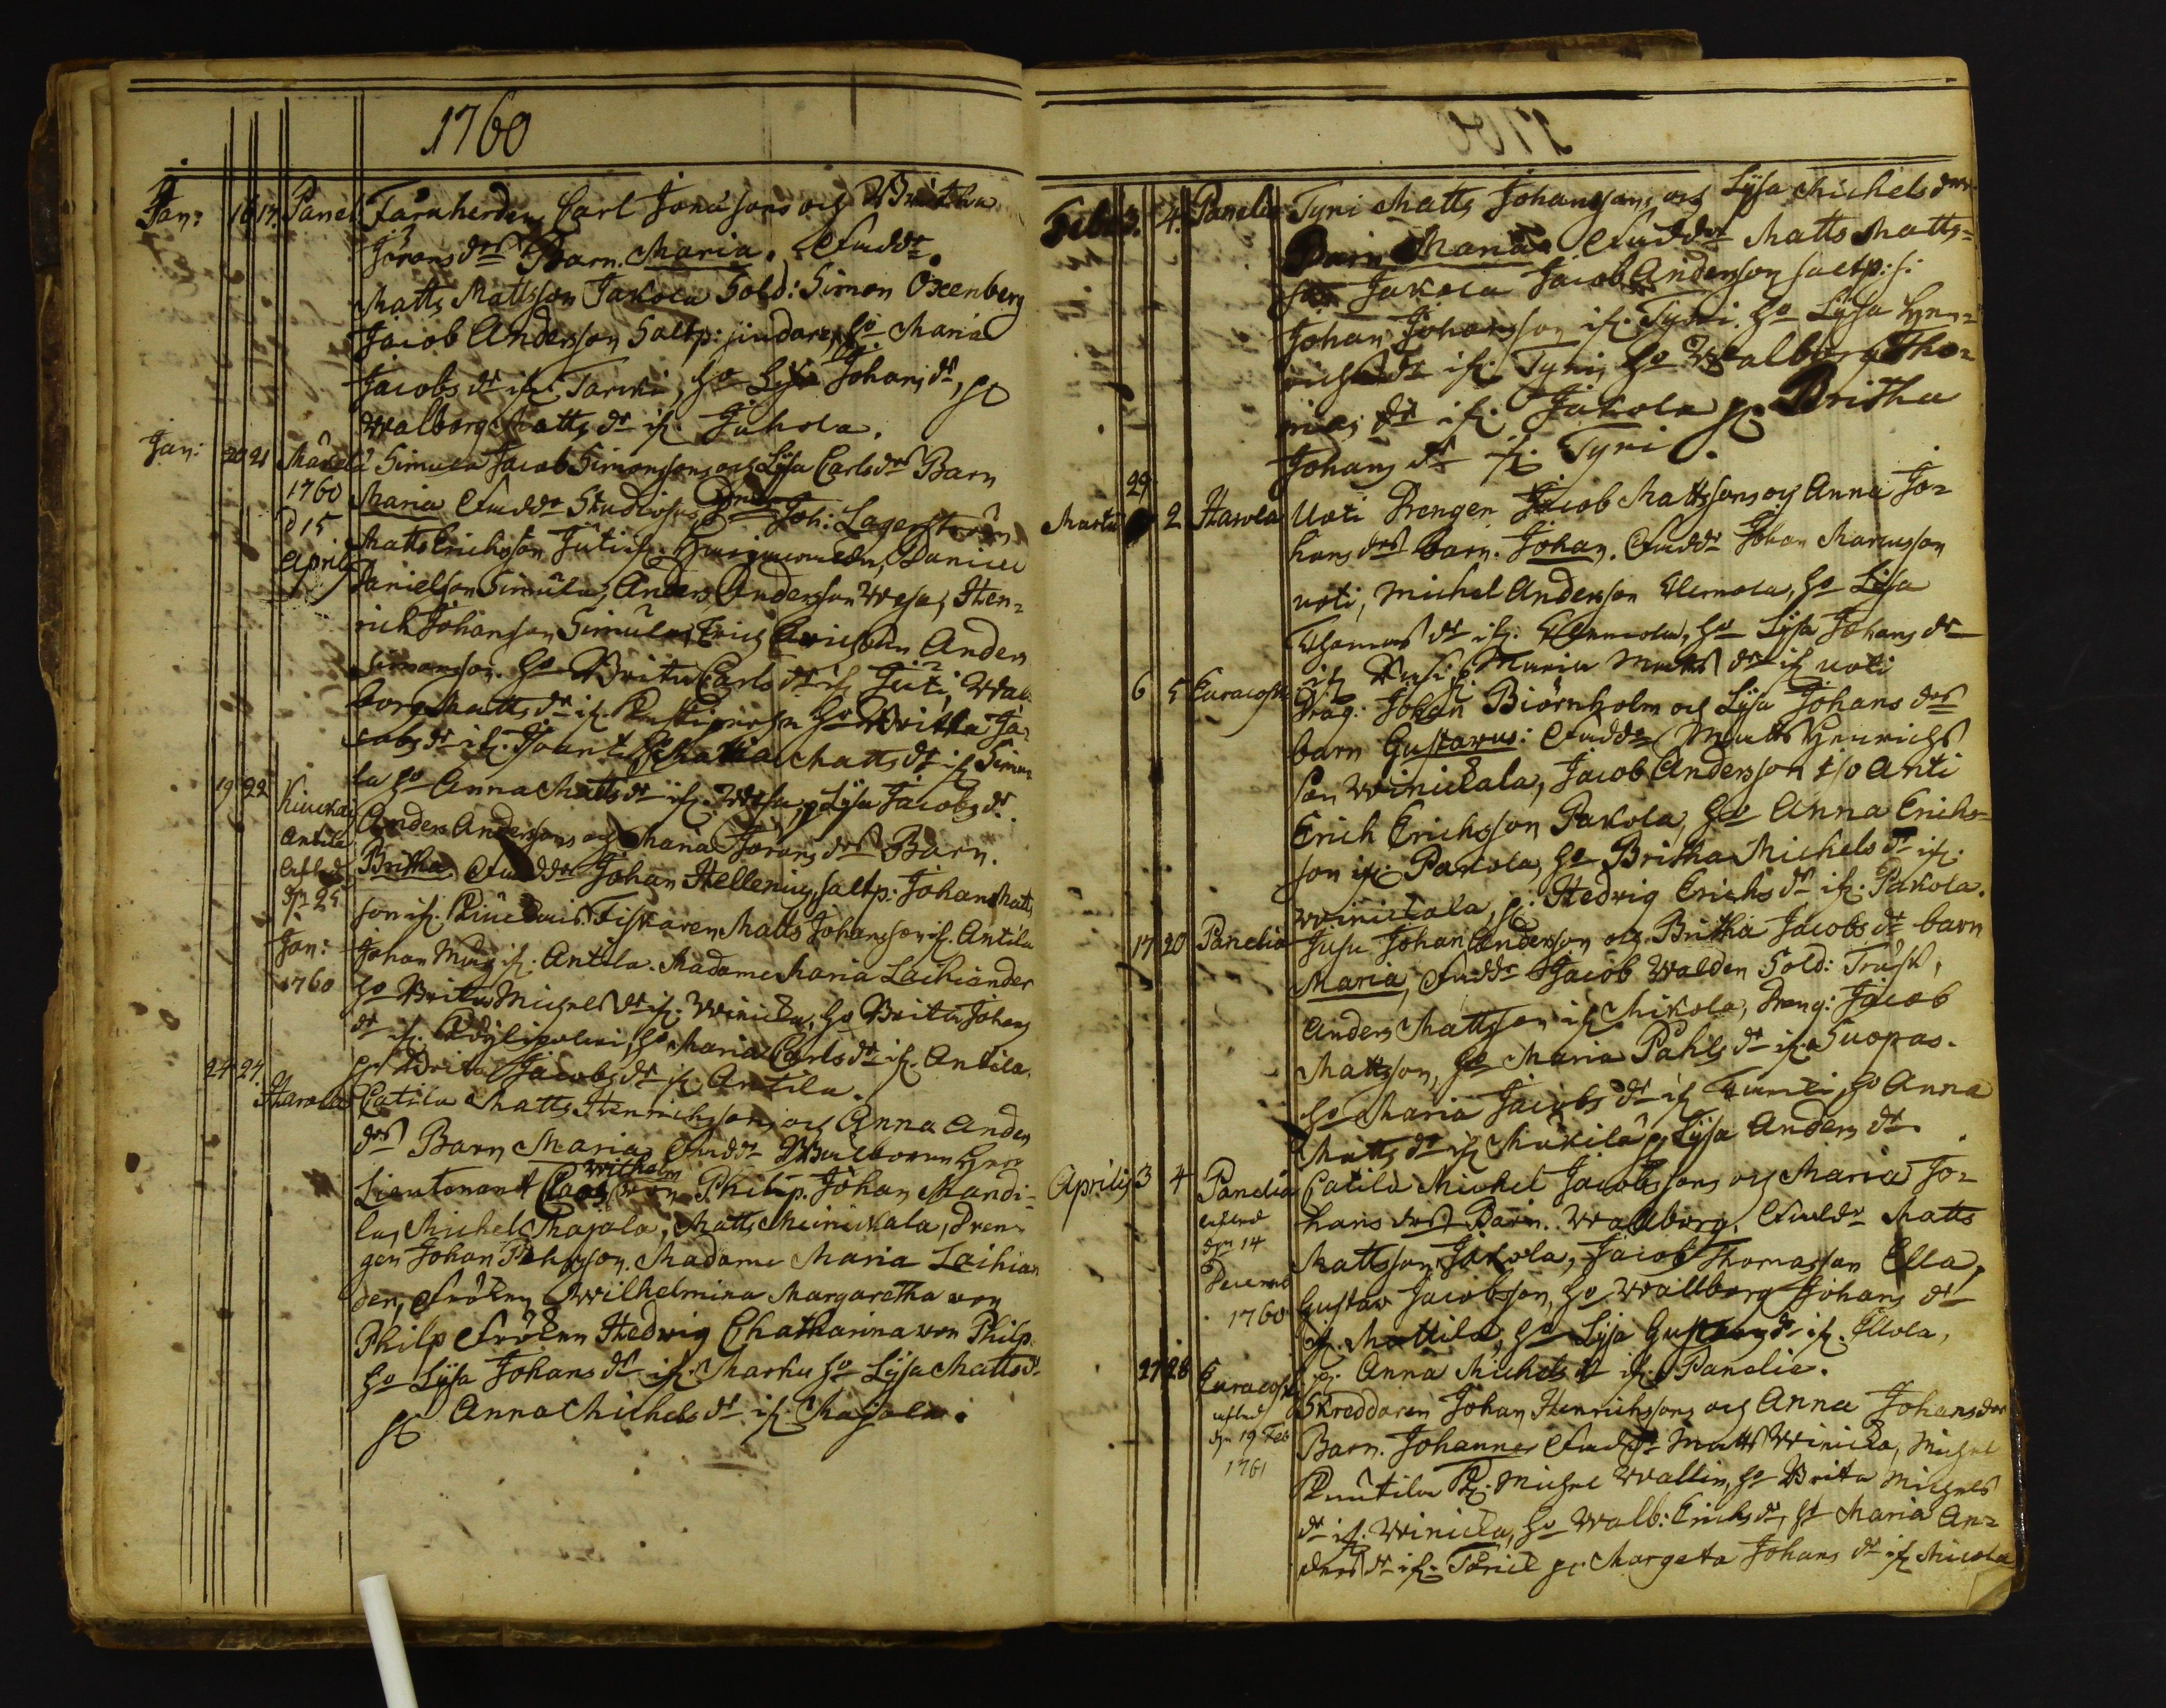 1760
Jan: 16 17. Panel. Fåraherden Carl Jonæsons och Britha
Jörans drs Barn. Maria. Faddr.
Matts Mattsson Jakola Sold: Simon Oxenberg
Jacob Andersson Saltp: siudare, ho Maria
Jacobs dr if. Tarvki, ho Lisa Johans dr, p
Walborg Matts dr if. Juhola.
Jan: 20 21 Simula Jacob Simonssons och Lisa Carls drs Barn
1760 Maria Faddr Studiosus Joh: Lagerström
d 15 Matts Erichsson Juti Daniel
April Danielsson Simula, Anders Andersson Wesa, Hen=
rich Johansson Simula, Erich Ericsson Anders
Simonsson. ho Brita Carls dr if Juti, Wal
borg Matts dr if. ho Britha Ja=
cobs dr if. Maria Matts dr if Simu
la ho Anna Matts dr if. Wesa, p Lisa Jacobs dr.
19 22 Kiuckais Anders Anderssons och Maria Jörans drs Barn.
Antila Britha. Faddr Johan Hellenius, saltp: Johan Matts
son if. Kiuckais. Fiskaren Matts Johansson if. Antila
den 25 Jan: Johan if. Antila. Madame Maria Laihiander
1760 ho Brita Michels dr if. Winicka, ho Brita Johans
dr if. ho Maria Carls dr if. Antila.
p Brita Jacobs dr if Antila.
24 27. Harola Catila Matts Henrichssons och Anna Anders
drs Barn Maria Faddr Wälborne Herr
Wilhelm
Lieutenant Claes von Philp. Johan Mandi-
lus, Michel Majala, Matts Meinickala, Dren-
gen Johan Pehrsson. Madame Maria Laihian
der, Fröken Wilhelmina Margaretha von
Philp Fröken Hedvig Chatharina von Philp.
ho Lisa Johans dr if. Marku ho Lisa Matts dr
p Anna Michels dr if. Majala.
Febr 3. 4. Panelia Tyni Matts Johanssons och Lisa Michels drs
Barn Maria. Faddr Matts Matts=
son Jakola Jacob Andersson saltp: s:
Johan Johansson if. Tyni. ho Lisa Hen=
richs dr if. Tyni, ho Walborg Tho=
mas dr if. Jakola p. Britha
Johans dr if. Tyni.
29
Martii 2 Harola Uoti Drengen Jacob Mattssons och Anna Jo=
hans drs barn. Johan. Faddr Johan Marcusson
uoti, Michel Andersson ho Lisa
Thomas dr if. ho Lisa Johans dr
if p Maria Matts dr if uoti
6 5 Euracoski Drag: Johan Biörnholm och Lisa Johans drs
barn Gustavus: Faddr Matts Henrichs
son Winickala, Jacob Andersson iso Anti
Erich Erichsson Pakola, ho Anna Erichs=
son if. Pakola, ho Britha Michels dr if.
Winickala, p: Hedvig Erichs dr if. Pakola.
17 20 Panelia Jusu Johan Andersson och Britha Jacobs dr barn
Maria, Faddr Jacob Walden Sold: Trüst,
Anders Mattsson if Mikola, Dreng: Jacob
Mattsson, ho Maria Pahls dr if. Suopas.
ho Maria Jacobs dr if ho Anna
Matts dr if Mickilä p Lisa Anders dr.
Aprilis 3 4 Panelia Catila Michel Jacobssons och Maria Jo=
hans drs Barn. Wallborg. Faddr Matts
den 14 Mattsson Jakola, Jacob Thomasson Ella,
Decemb 1760 Gustav Jacobsson, ho Wallborg Johans dr
if. Mattila, ho Lisa Gustavs dr if. Illola,
p. Anna Michels dr if. Panelia.
27 28 Euracoski Skreddaren Johan Henrichssons och Anna Johans drs
den 19 Feb Barn. Johannes Faddr Matts Winicka, Michel
1761 Puntila Michel Wallin, ho Brita Michels
dr if. Winicka, ho Walb: Erichs dr, ho Maria An=
ders dr if. p: Margeta Johans dr if Micola